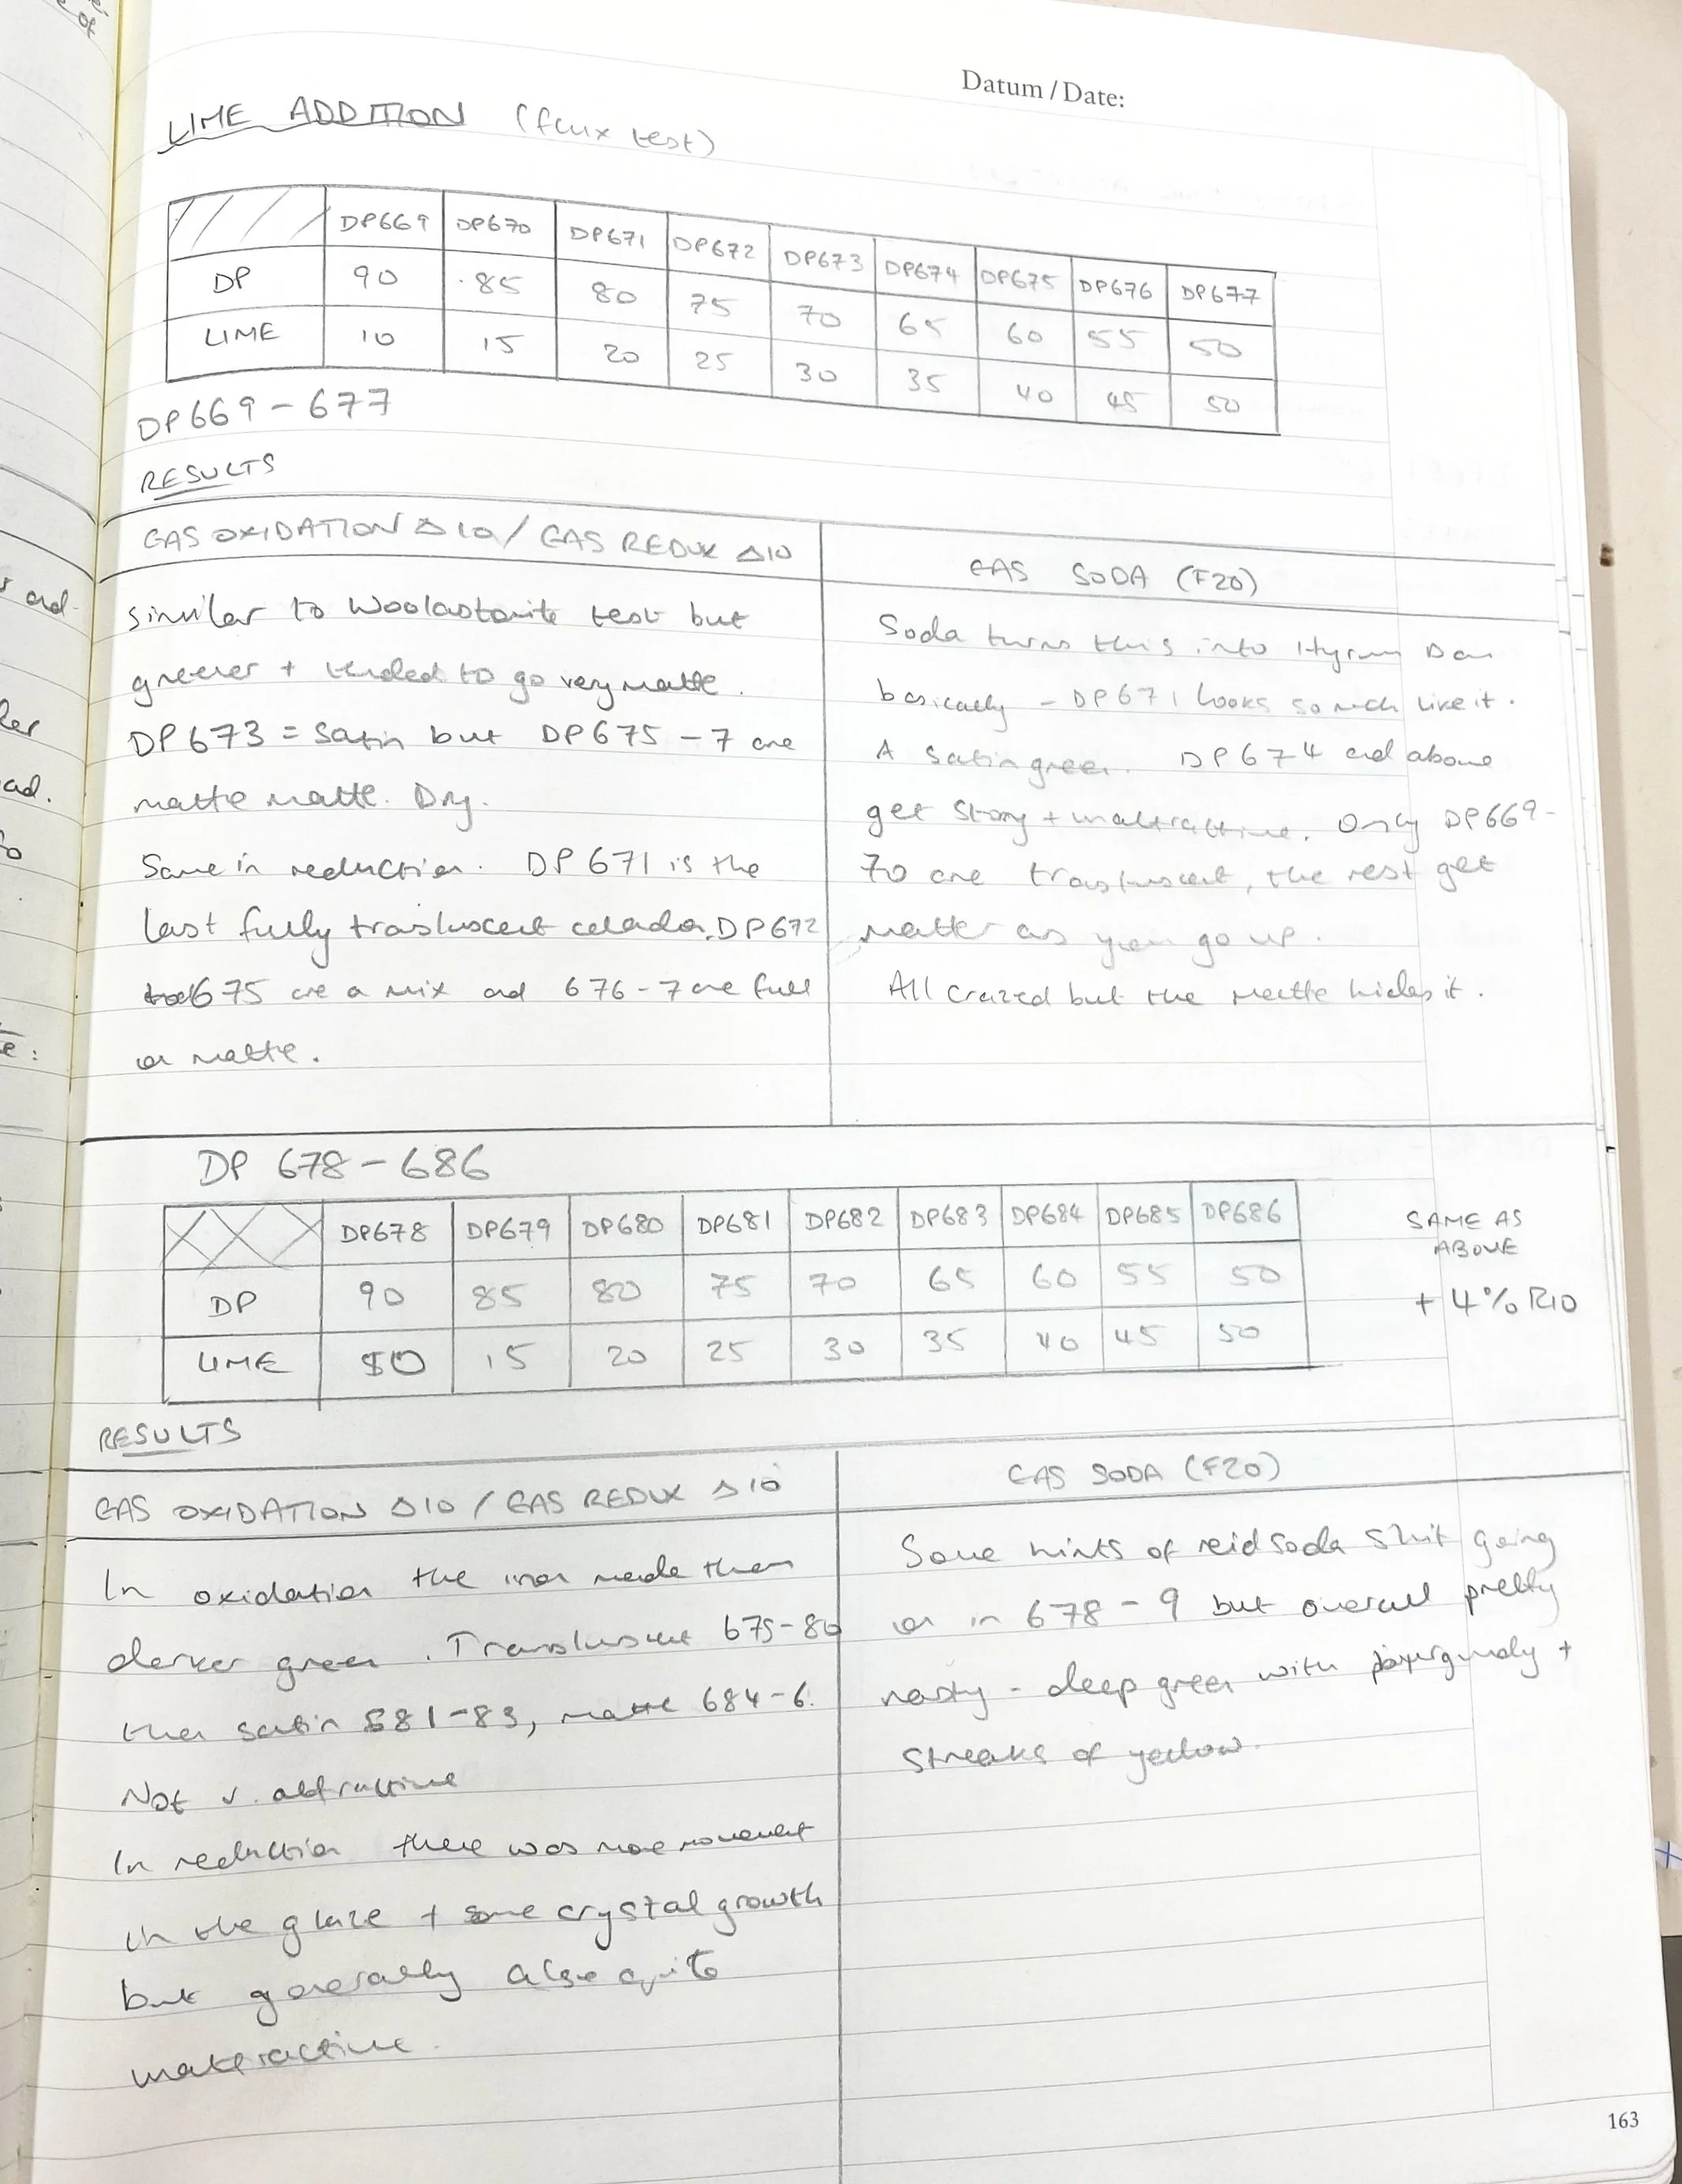 Datum / Date:
LIME ADDITION (flux test)
DP669 DP670 DP671 DP672 DP673 DP674 DP675 DP676 DP677
DP 90 85 80 75 70 65 60 55 50
LIME 10 15 20 25 30 35 40 45 50
DP669 - 677
RESULTS
GAS OXIDATION Δ10 / GAS REDUX Δ10
similar to Woolastonite test but
greener + tended to go very matte.
DP673 = Satin but DP675 - 7 are
matte matte. Dry.
Same in reduction. DP 671 is the
last fully transluscent celadon. DP672
675 are a mix and 676 - 7 are full
on matte.
GAS SODA (F20)
Soda turns this into
basically - DP671 looks so much like it.
A satin green. DP674 and above
get Stony + unattractive. Only DP669-
70 are transluscent, the rest get
matter as you go up.
All crazed but the matte hides it.
DP 678 - 686
DP678 DP679 DP680 DP681 DP682 DP683 DP684 DP685 DP686
DP 90 85 80 75 70 65 60 55 50
LIME 10 15 20 25 30 35 40 45 50
SAME AS
ABOVE
+ 4% RIO
RESULTS
GAS OXIDATION Δ10 / GAS REDUX Δ10
In oxidation the iron made them
darker green. Transluscent 679-80
then satin 681-83, matte 684-6.
Not v. attractive
In reduction there was more movement
in the glaze + some crystal growth
but generally also quite
unattractive.
GAS SODA (F20)
Some hints of reid soda shit going
on in 678 - 9 but overall pretty
nasty - deep green with burgundy +
streaks of yellow.
163